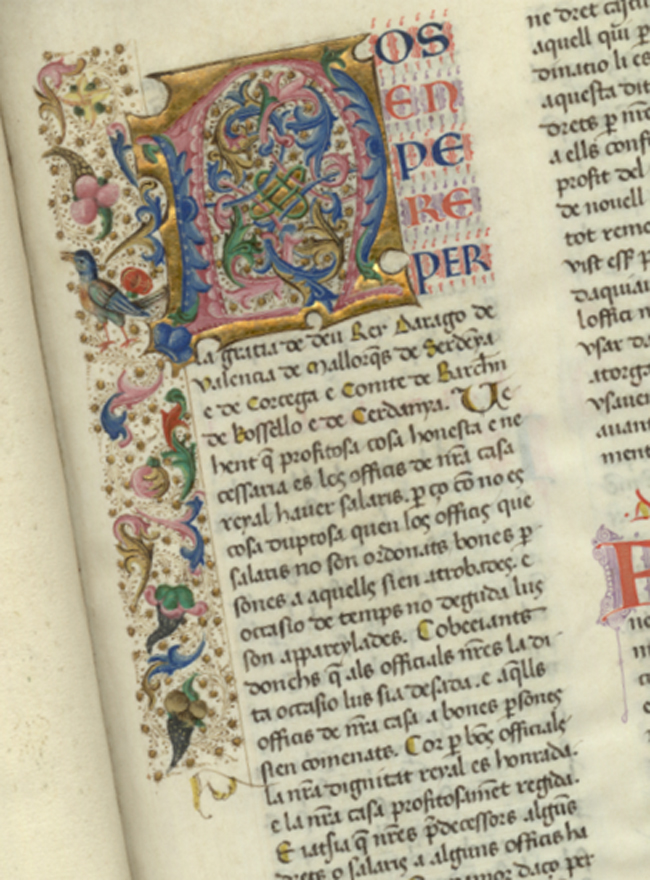 NOS
EN
PE
RE
PER
la gracia de deu Rey Darago de
valencia de Mallorq̃s de Serdeya
e de Corcega e Comte de Barch̃n
de Rossello e de Cerdanya. Ve
hent q̃ profitosa cosa honesta e ne
cessaria es los officis de nr̃a casa
reyal hauer salaris. p ço cō no es
cosa duptosa quen los officis que
salaris no son ordonats bones p
sones a aquells sien atrobades. e
occasio de temps no deguda lus
son appareylades. Cobeeiants
donchs q̃ als officials nr̃es la di
ta occasio lus sia desada. e aq̃lls
officis de nr̃a casa a bones psones
sien comenats. Cor p bōs officials
la nr̃a dignitat reyal es honrada.
e la nr̃a casa profitosamēt regida.
E iatsia q̃ nr̃es p̃decessors alguns
drets o salaris a alguns officis ha
ne dret
aquell qui p
dinacio li es
aquesta dit
drets p nr̃
a ells conf
profit del
de nouell
tot reme
vist ess p
daquia
loffici n
vsar da
atorga
vsauen
auant
ment